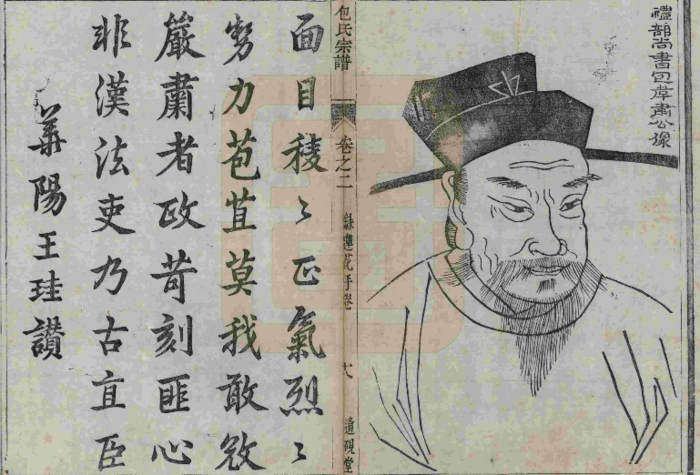 禮部尚書包孝肅公像
包氏宗譜
卷之二
遺硯堂
面目稜〻正氣烈〻
勢力苞苴莫我敢
嚴肅者政苛刻匪心
非漢法吏乃古直臣
華陽王珪讚